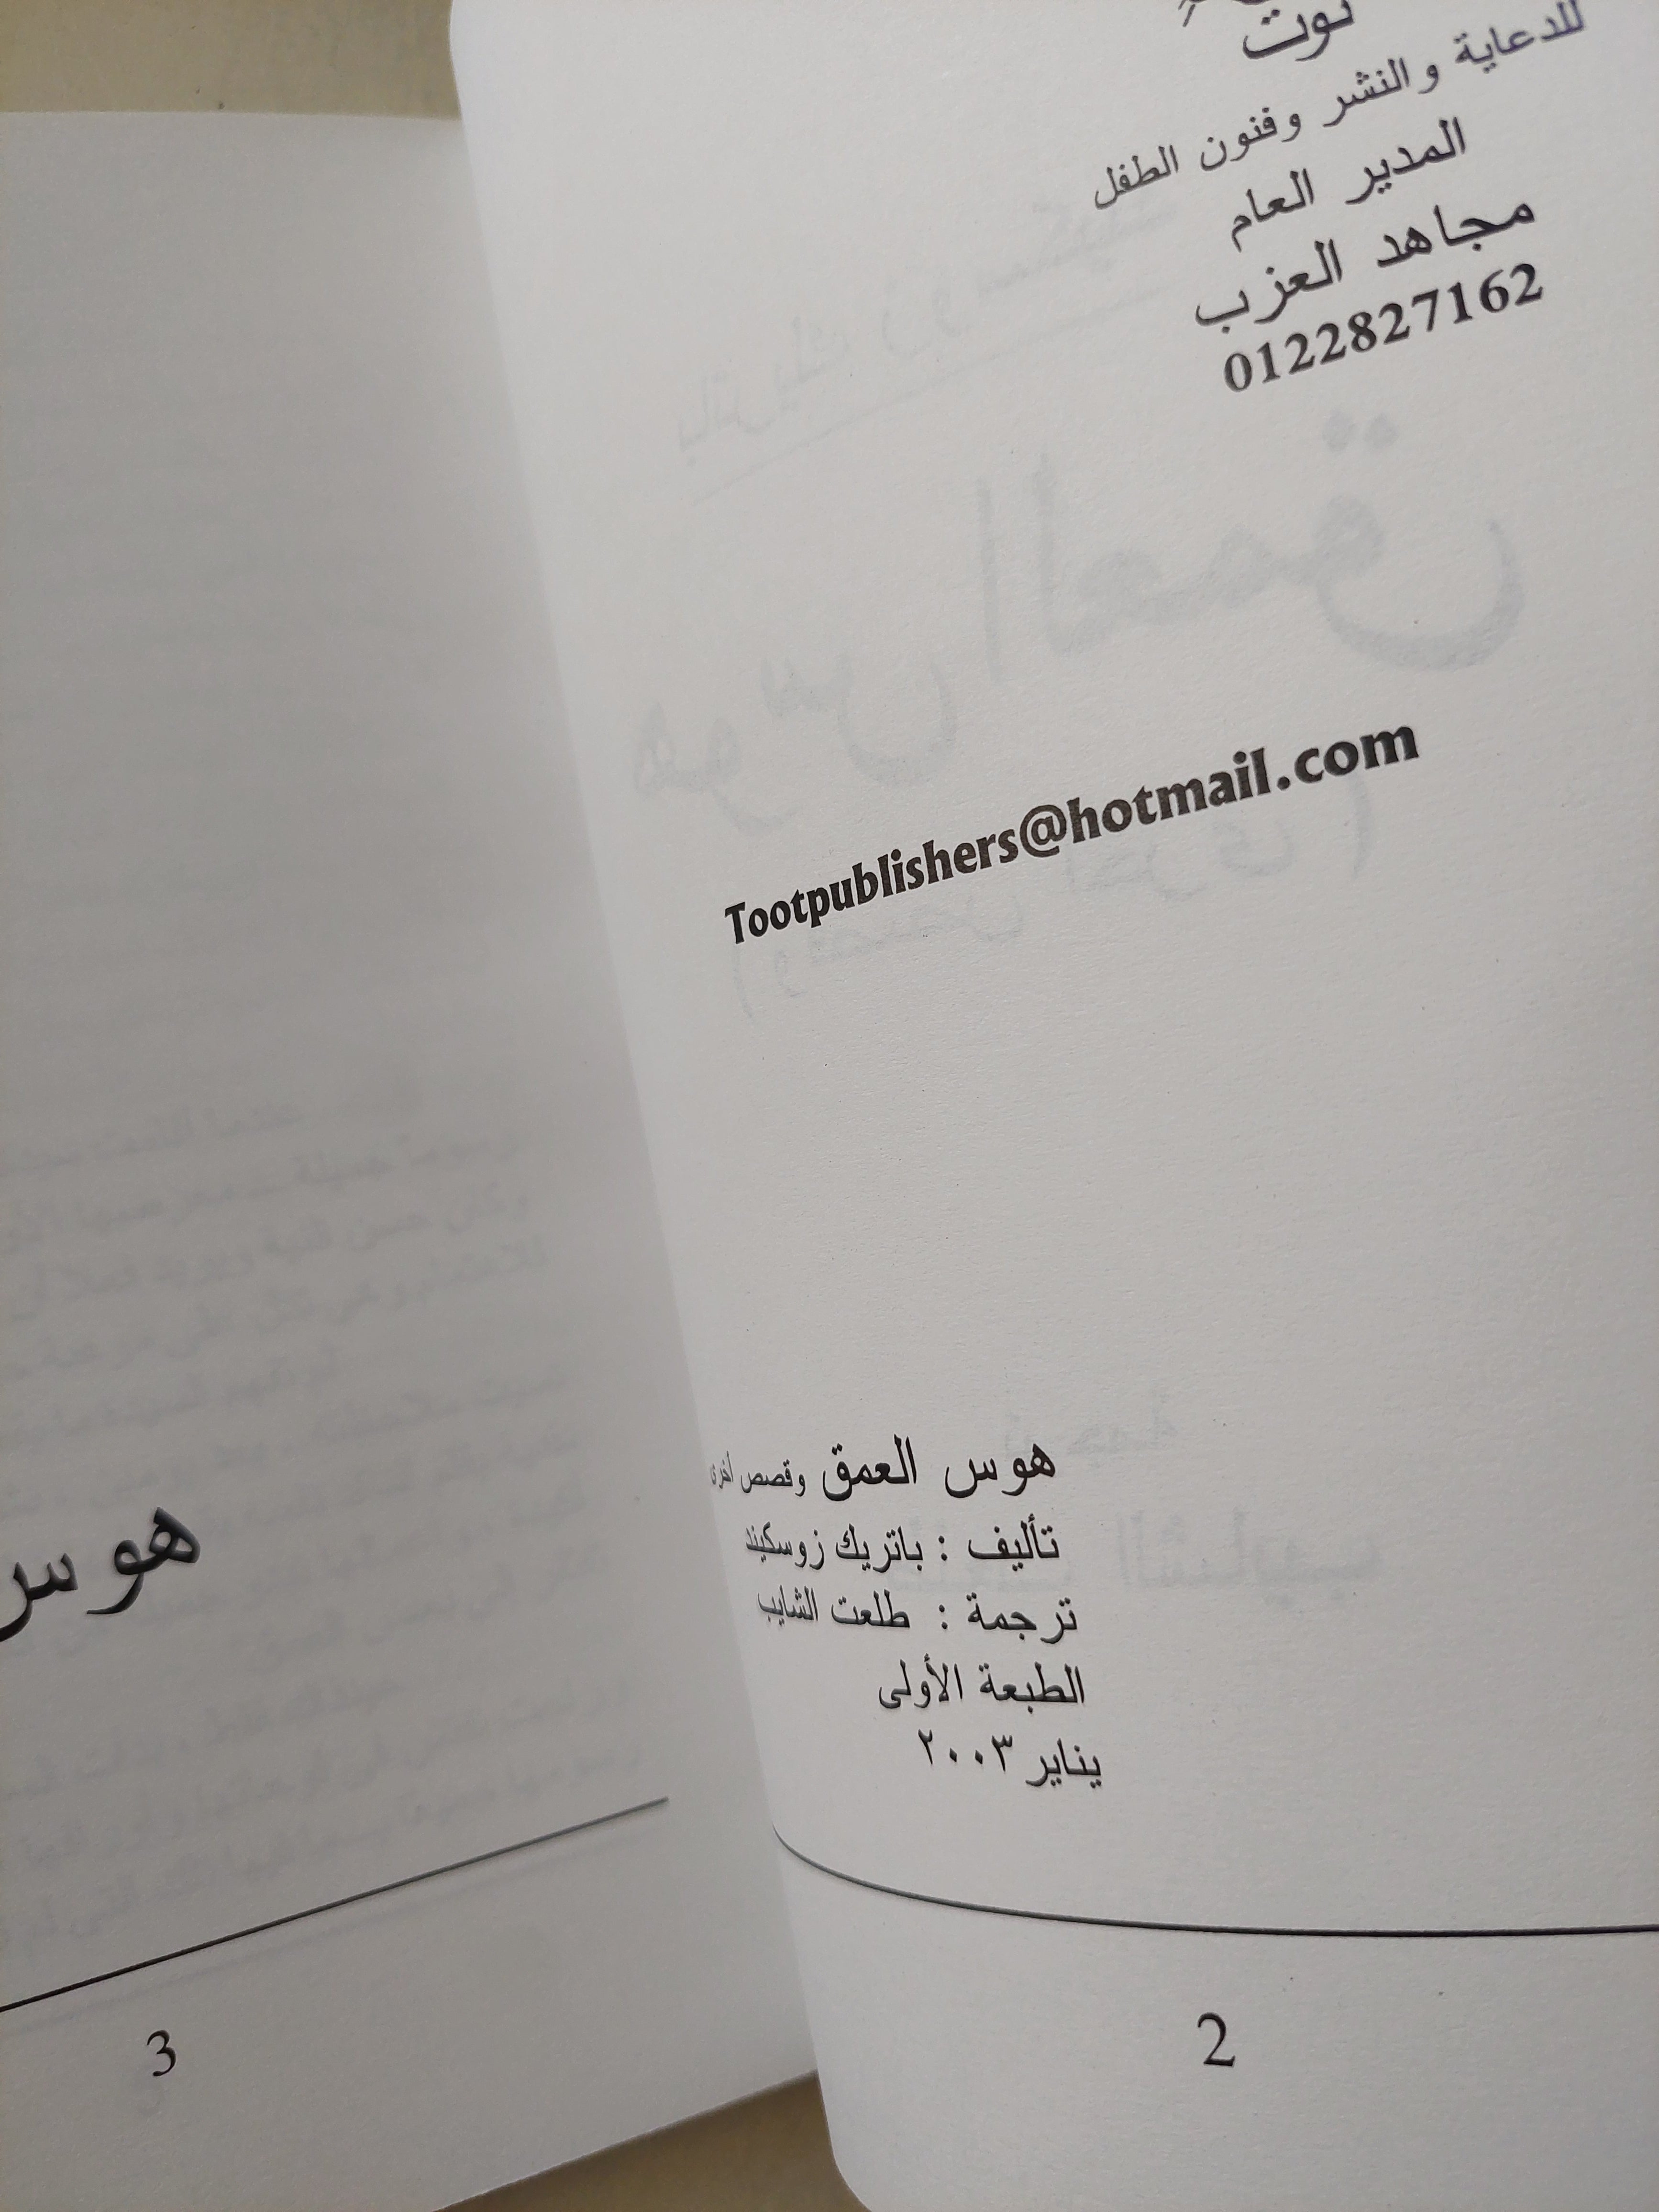 توت
للدعاية والنشر وفنون الطفل
المدير العام
مجاهد العزب
0122827162
Tootpublishers@hotmail.com
هوس العمق وقصص أخرى
تأليف : باتريك زوسكيند
ترجمة : طلعت الشايب
الطبعة الأولى
يناير ٢٠٠٣
2
هوس
3